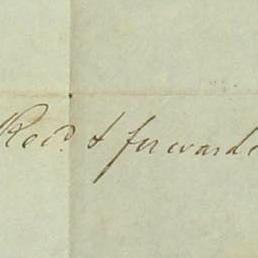 Rec'd. & forwarde